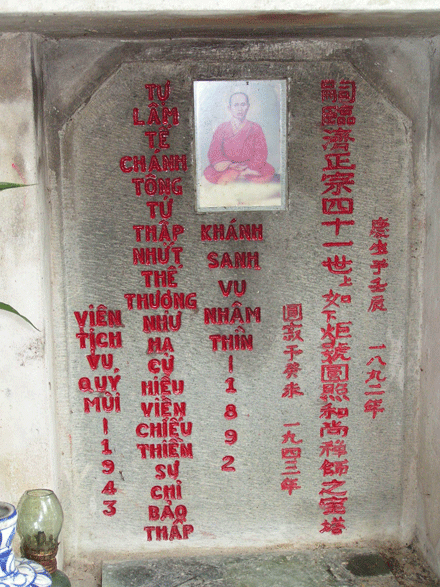 慶生于壬辰 一八九二年
嗣臨濟正宗四十一世上如下炬號圓照和尚禅師之宝塔
圓寂于癸未 一九四三年
KHÁNH SANH VU NHÂM THÌN | 1892
TỰ LÂM TẾ CHÁNH TÔNG TỨ THẬP NHỨT THẾ THƯỢNG NHƯ HẠ CỰ HIỆU VIÊN CHIẾU THIỀN SƯ CHỈ BẢO THÁP
VIÊN TỊCH VU QUÝ MÙI | 1943